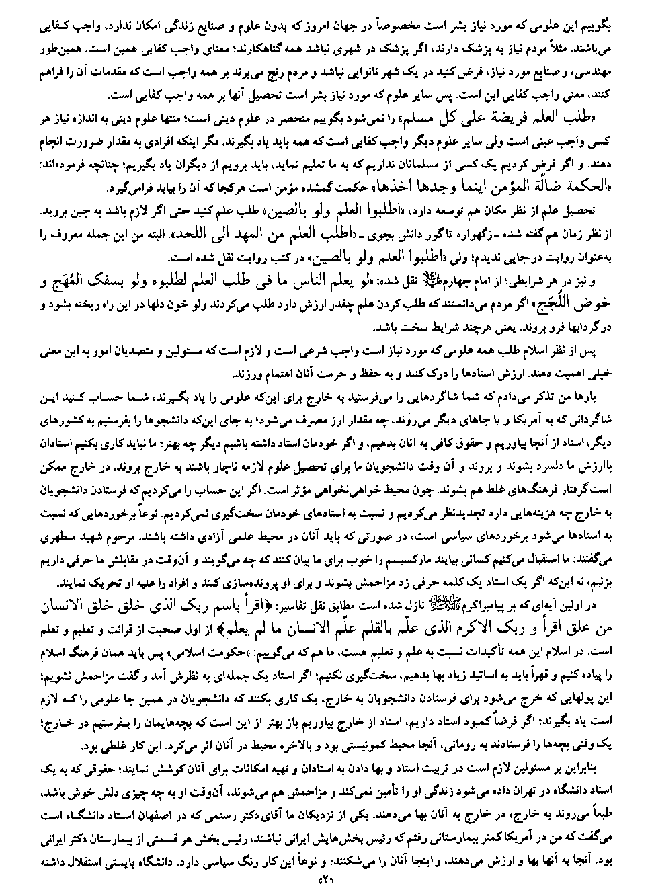 بگوییم این علومی که مورد نیاز بشر است مخصوصاً در جهان امروز که بدون علوم و صنایع زندگی امکان ندارد. واجب کفایی
می‌باشند. مثلاً مردم نیاز به پزشک دارند، اگر پزشک در شهری نباشد همه گناهکارند؛ معنای واجب کفایی همین است. همین‌طور
مهندسی، و صنایع مورد نیاز، فرض کنید در یک شهر نانوایی نباشد و مردم رنج می‌برند بر همه واجب است که مقدمات آن را فراهم
کنند، معنی واجب کفایی این است. پس سایر علوم که مورد نیاز بشر است تحصیل آنها بر همه واجب کفایی است.
«طلب العلم فریضة علی کل مسلم» را نمی‌شود بگوییم منحصر در علوم دینی است؛ منتها علوم دینی به اندازه نیاز هر
کسی واجب عینی است ولی سایر علوم دیگر واجب کفایی است که همه باید یاد بگیرند، مگر اینکه افرادی به مقدار ضرورت انجام
دهند. و اگر فرض کردیم یک کسی از مسلمانان نداریم که به ما تعلیم نماید، باید برویم از دیگران یاد بگیریم؛ چنانچه فرموده‌اند:
«الحکمة ضالّة المؤمن اینما وجدها أخذها» حکمت گمشده مؤمن است هرکجا که آن را بیابد فرامی‌گیرد.
تحصیل علم از نظر مکان هم توسعه دارد، «اطلبوا العلم ولو بالصین» طلب علم کنید حتی اگر لازم باشد به چین بروید.
از نظر زمان هم گفته شده ـ زگهواره تاگور دانش بجوی ـ «اطلب العلم من المهد الی اللحد». البته من این جمله معروف را
به‌عنوان روایت در جایی ندیدم؛ ولی «اطلبوا العلم ولو بالصین» در کتب روایت نقل شده است.
و نیز در هر شرایطی؛ از امام چهارم نقل شده: «لو یعلم الناس ما فی طلب العلم لطلبوه ولو بسفک المُهَج و
خوض اللُجَج» اگر مردم می‌دانستند که طلب کردن علم چقدر ارزش دارد طلب می‌کردند ولو خون دلها در این راه ریخته بشود و
در گردابها فرو بروند. یعنی هرچند شرایط سخت باشد.
پس از نظر اسلام طلب همه علومی که مورد نیاز است واجب شرعی است و لازم است که مسئولین و متصدیان امور به این معنی
خیلی اهمیت دهند. ارزش استادها را درک کنند و به حفظ و حرمت آنان اهتمام ورزند.
بارها من تذکر می‌دادم که شما شاگردهایی را می‌فرستید به خارج برای این‌که علومی را یاد بگیرند، شما حساب کنید این
شاگردانی که به آمریکا و یا جاهای دیگر می‌روند، چه مقدار ارز مصرف می‌شود؛ به جای این‌که دانشجوها را بفرستیم به کشورهای
دیگر، استاد از آنجا بیاوریم و حقوق کافی به آنان بدهیم، و اگر خودمان استاد داشته باشیم دیگر چه بهتر؛ ما نباید کاری بکنیم استادان
باارزش ما دلسرد بشوند و بروند و آن وقت دانشجویان ما برای تحصیل علوم لازمه ناچار باشند به خارج بروند، در خارج ممکن
است گرفتار فرهنگ‌های غلط هم بشوند. چون محیط خواهی‌نخواهی مؤثر است. اگر این حساب را می‌کردیم که فرستادن دانشجویان
به خارج چه هزینه‌هایی دارد تجدیدنظر می‌کردیم و نسبت به استادهای خودمان سخت‌گیری نمی‌کردیم. نوعاً برخوردهایی که نسبت
به استادها می‌شود برخوردهای سیاسی است، در صورتی که باید آنان در محیط علمی آزادی داشته باشند. مرحوم شهید مطهری
می‌گفتند: ما استقبال می‌کنیم کسانی بیایند مارکسیسم را خوب برای ما بیان کنند که چه می‌گویند و آن‌وقت در مقابلش ما حرفی داریم
بزنیم، نه این‌که اگر یک استاد یک کلمه حرفی زد مزاحمش بشوند و برای او پرونده‌سازی کنند و افراد را علیه او تحریک نمایند.
در اولین آیه‌ای که بر پیامبراکرم نازل شده است مطابق نقل تفاسیر: ﴿اقرأ باسم ربک الذی خلق خلق الانسان
من علق اقرأ و ربک الاکرم الذی علّم بالقلم علّم الانسان ما لم یعلم﴾ از اول صحبت از قرائت و تعلیم و تعلم
است. در اسلام این همه تأکیدات نسبت به علم و تعلیم هست، ما هم که می‌گوییم: «حکومت اسلامی» پس باید همان فرهنگ اسلام
را پیاده کنیم و قهراً باید به اساتید زیاد بها بدهیم، سخت‌گیری نکنیم؛ اگر استاد یک جمله‌ای به نظرش آمد و گفت مزاحمش نشویم؛
این پولهایی که خرج می‌شود برای فرستادن دانشجویان به خارج، یک کاری بکنند که دانشجویان در همین جا علومی را که لازم
است یاد بگیرند؛ اگر فرضاً کمبود استاد داریم، استاد از خارج بیاوریم باز بهتر از این است که بچه‌هایمان را بفرستیم در خارج؛
یک وقتی بچه‌ها را فرستادند به رومانی، آنجا محیط کمونیستی بود و بالاخره محیط در آنان اثر می‌کرد. این کار غلطی بود.
بنابراین بر مسئولین لازم است در تربیت استاد و بها دادن به استادان و تهیه امکانات برای آنان کوشش نمایند؛ حقوقی که به یک
استاد دانشگاه در تهران داده می‌شود زندگی او را تأمین نمی‌کند و مزاحمش هم می‌شوند، آن‌وقت او به چه چیزی دلش خوش باشد،
طبعاً می‌روند به خارج، در خارج به آنان بها می‌دهند. یکی از نزدیکان ما آقای دکتر رستمی که در اصفهان استاد دانشگاه است
می‌گفت که من در آمریکا کمتر بیمارستانی رفتم که رئیس بخش‌هایش ایرانی نباشند، رئیس بخش هر قسمتی از بیمارستان دکتر ایرانی
بود. آنجا به آنها بها و ارزش می‌دهند، و اینجا آنان را می‌شکنند؛ و نوعاً این کار رنگ سیاسی دارد. دانشگاه بایستی استقلال داشته